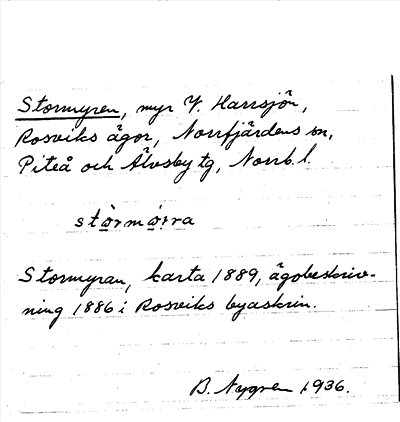 Stormyren, myr V. Harrsjön,
Rosviks ägor, Norrfjärdens sn,
Piteå och Älvsby tg, Norrb. l.
stò̤rmò̤rra
Stormyran, karta 1889, ägobeskriv-
ning 1886 i Rosviks byaskrin.
B. Nygren 1936.